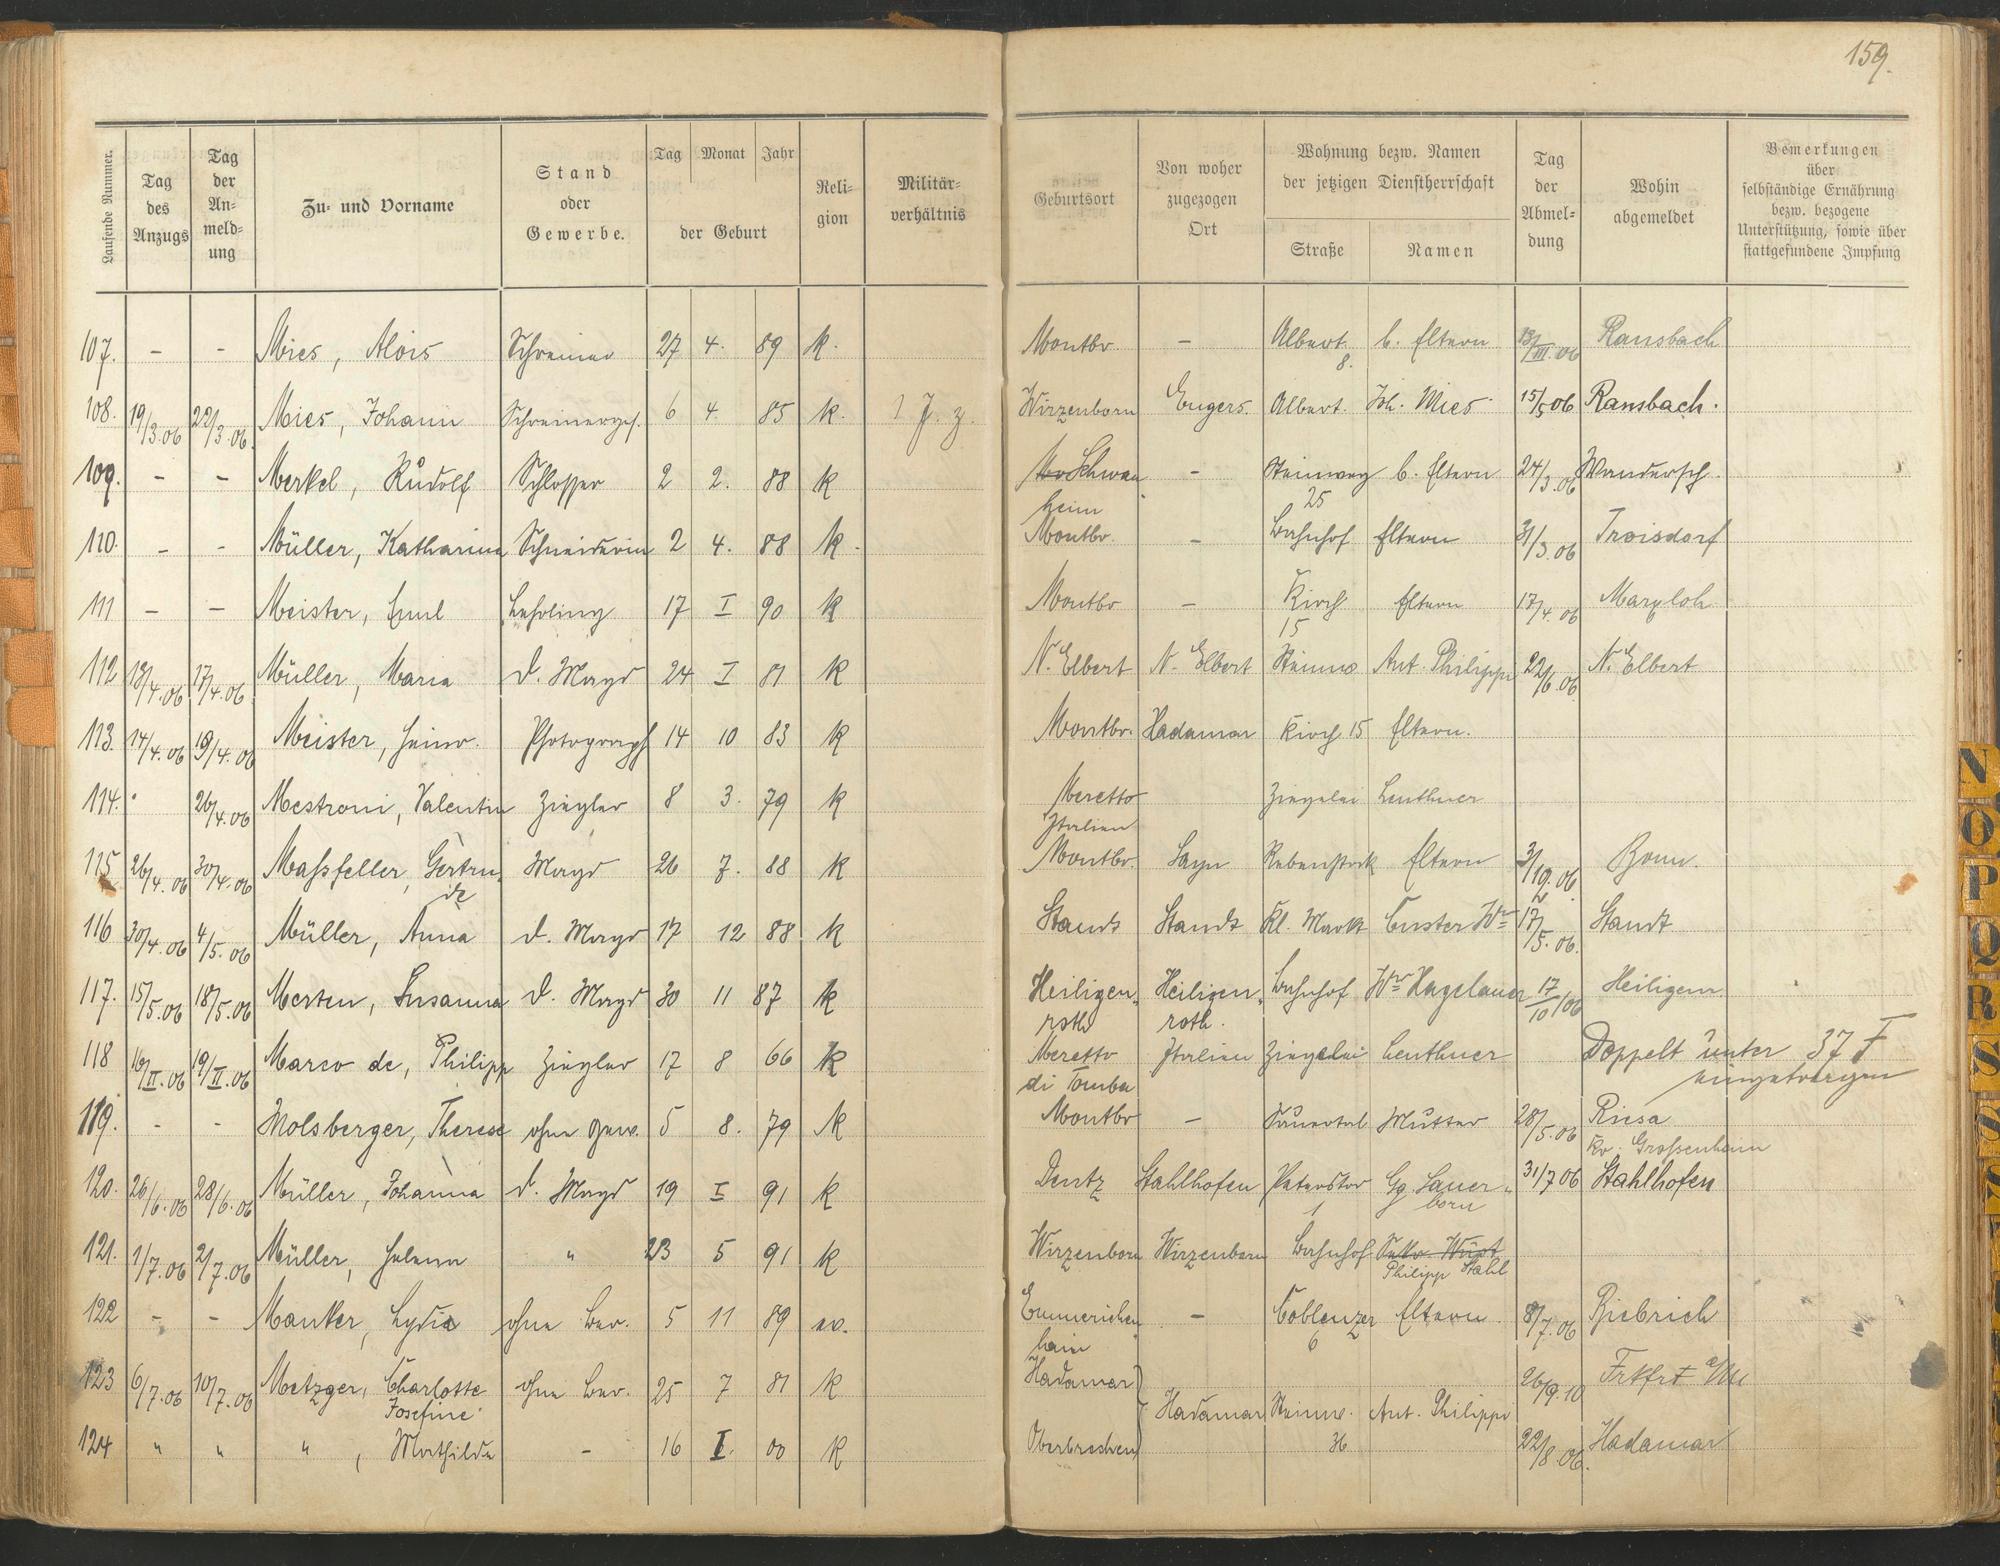 159.
Laufende Nummer. Tag des Anzugs Tag der Anmeldung Zu- und Vorname Stand oder Gewerbe. Tag Monat Jahr der Geburt Religion Militärverhältnis Geburtsort Von woher zugezogen Ort Wohnung bezw. Namen der jetzigen Dienstherrschaft Straße Namen Tag der Abmeldung Wohin abgemeldet Bemerkungen über selbständige Ernährung bezw. bezogene Unterstützung, sowie über stattgefundene Impfung
107. - - Mies, Alois Schreiner 27 4. 89 k. Montbr. - Albert. 8. b. Eltern 13/III.06 Ransbach
108. 19/3.06 22/3.06. Mies, Johann Schreinerges. 6 4. 85 k. Wirzenborn Engers. Albert. Joh. Mies 15/5 06 Ransbach.
109. - - Merkel, Rudolf Schlosser 2 2. 88 k Schwanheim - Steinweg 25 b. Eltern 24/3.06 Wandersch.
110. - - Müller, Katharina Schneiderin 2 4. 88 k. Montbr. - Bahnhof Eltern 31/3.06 Troisdorf
111 - - Meister, Emil Lehrling 17 I 90 k Montbr - Kirch 15 Eltern 17/4.06 Marxloh
112 13/4.06 17/4.06. Müller, Maria d. Magd 24 I 81 k N. Elbert N. Elbert Steinw Ant. Philippi 22/6.06. N. Elbert
113. 14/4.06 19/4.06 Meister, Heinr. Photograph 14 10 83 k Montbr. Hadamar Kirch 15 Eltern.
114. 26/4.06 Mestroni, Valentin Ziegler 8 3. 79 k Meretto Italien Ziegelei Leuthner
115 26/4.06 30/4.06 Maßfeller, Gertrude Magd 26 7. 88 k Montbr. Sayn Rebenstock Eltern Bonn.
116 30/4.06 4/5.06 Müller, Anna d. Magd 17 12 88 k Standt Standt Kl. Markt Custer Ww 17/5.06. Standt
117. 15/5.06 18/5.06 Merten, Susanna d. Magd 30 11 87 k Heiligenroth Heiligenroth. Bahnhof Ww Hagelauer 17/10/06 Heiligenr.
118 16/II.06 19/II.06 Marco de, Philipp Ziegler 17 8 66 k Meretto di Tomba Italien Ziegelei Leuthner Doppelt unter 37 F eingetragen
119. - - Molsberger, Therese ohne Gew. 5 8. 79 k Montbr - Sauertal Mutter 28/5.06 Riesa Kr. Großenhain
120. 26/6.06 28/6.06 Müller, Johanna d. Magd 19 I 91 k Deutz Stahlhofen Peterstor 1 Gg. Sauerborn 31/7 06 Stahlhofen
121. 1/7.06 2/7.06 Müller, Helena " 23 5 91 k Wirzenborn Wirzenborn Bahnhof Wüst Philipp Stahl
122 - - Manker, Lydia ohne Ber. 5 11 89 ev. Emmerichenhain - Coblenzer 6 Eltern. 8/7.06 Biebrich
123 6/7.06 10/7.06 Metzger, Charlotte Josefine ohne Ber. 25 7 81 k Hadamar Hadamar Steinw. 36 Ant. Philippi 26/9.10 Frkfrt a/M
124 " " " , Mathilde - 16 I. 00 k Oberbrechen 22/8.06. Hadamar
N
O
P
Q
R
S